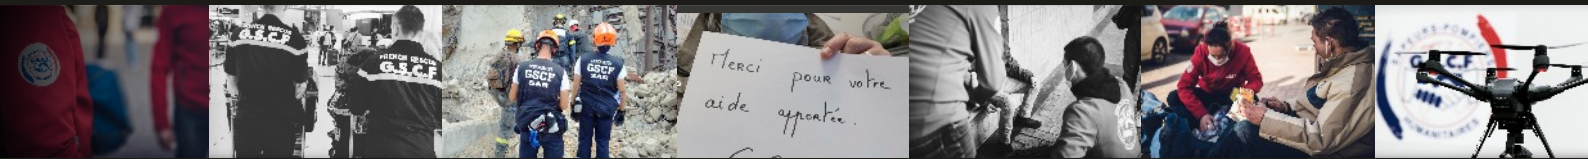 FRENCH RESCUE
G.S.C.F
FRENCH RESCUE
G.S.C.F
GSCF
SAR
GSCF
SAR
Merci pour votre
aide apportée.
SAPEURS-POMPIERS
G.S.C.F
HUMANITAIRES